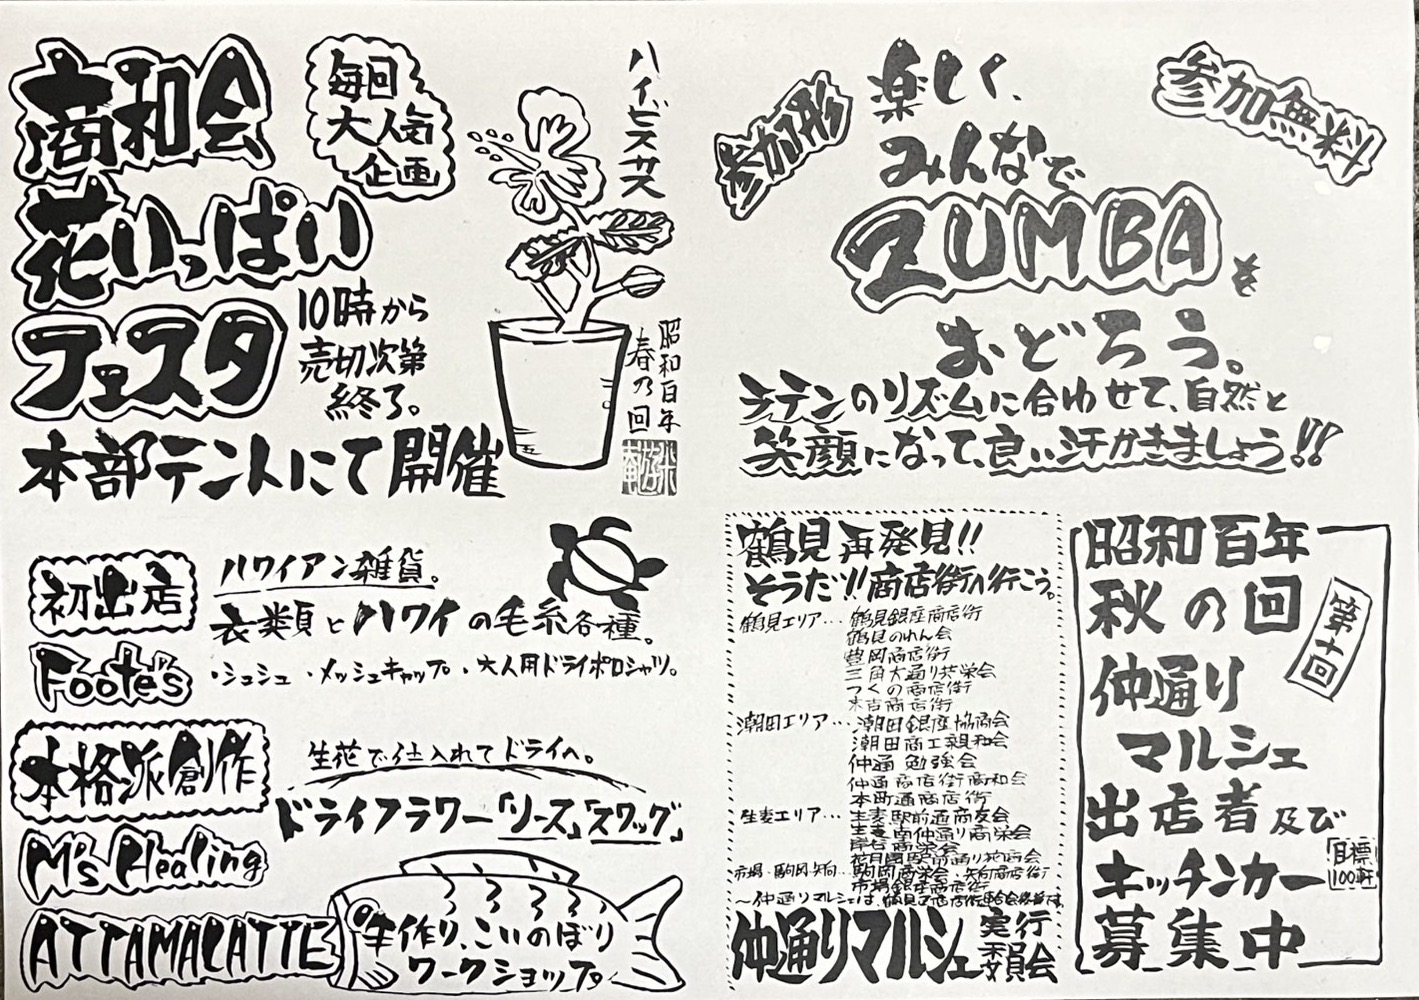 商和会
花いっぱい
フェスタ
毎回
大人気
企画
10時から
売切次第
終了。
本部テントにて開催
ハイビスカス
昭和百年
春の回
初出店
Foote's
ハワイアン雑貨。
衣類とハワイの毛糸各種。
・シュシュ ・メッシュキャップ ・大人用ドライポロシャツ。
本格派創作
M's Healing
生花で仕入れてドライへ。
ドライフラワー「リース」「スワッグ」
ATTAMALATTE
手作り、こいのぼり
ワークショップ。
参加形
参加無料
楽しく、
みんなで
ZUMBAを
おどろう。
ラテンのリズムに合わせて、自然と
笑顔になって、良い汗かきましょう!!
鶴見再発見!!
そうだ!!商店街へ行こう。
鶴見エリア… 鶴見銀座商店街
鶴見のれん会
豊岡商店街
三角大通り共栄会
つくの商店街
末吉商店街
潮田エリア… 潮田銀座協商会
潮田商工親和会
仲通勉強会
仲通商店街商和会
本町通商店街
生麦エリア… 生麦駅前通商友会
生麦南仲通り商栄会
岸谷商栄会
花月園駅前通り和商会
市場・駒岡・矢向… 駒岡商栄会・矢向商店街
市場銀座商店街
〜仲通りマルシェは、鶴見区商店街連合会後援です
仲通りマルシェ実行委員会
昭和百年
秋の回
第十回
仲通り
マルシェ
出店者及び
キッチンカー
目標
100軒
募集中